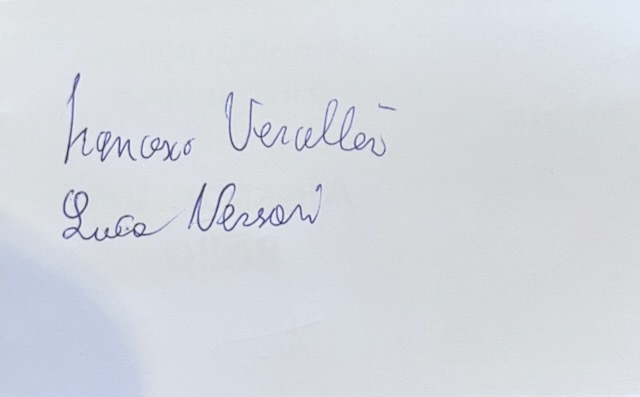 Francesco Vercellesi
Luca Versari